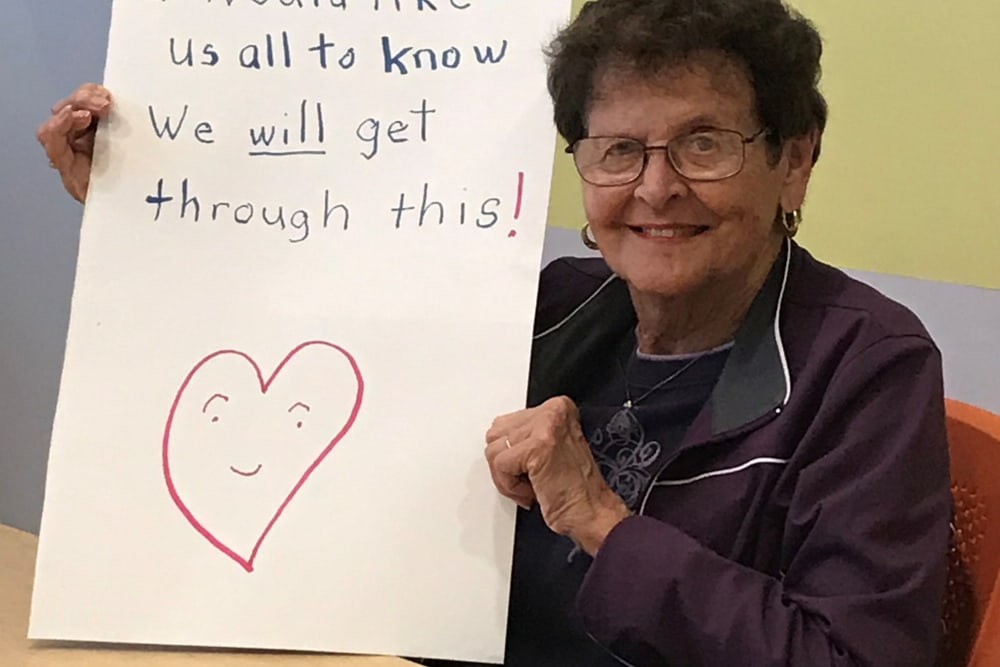 would like
us all to know
We will get
through this!